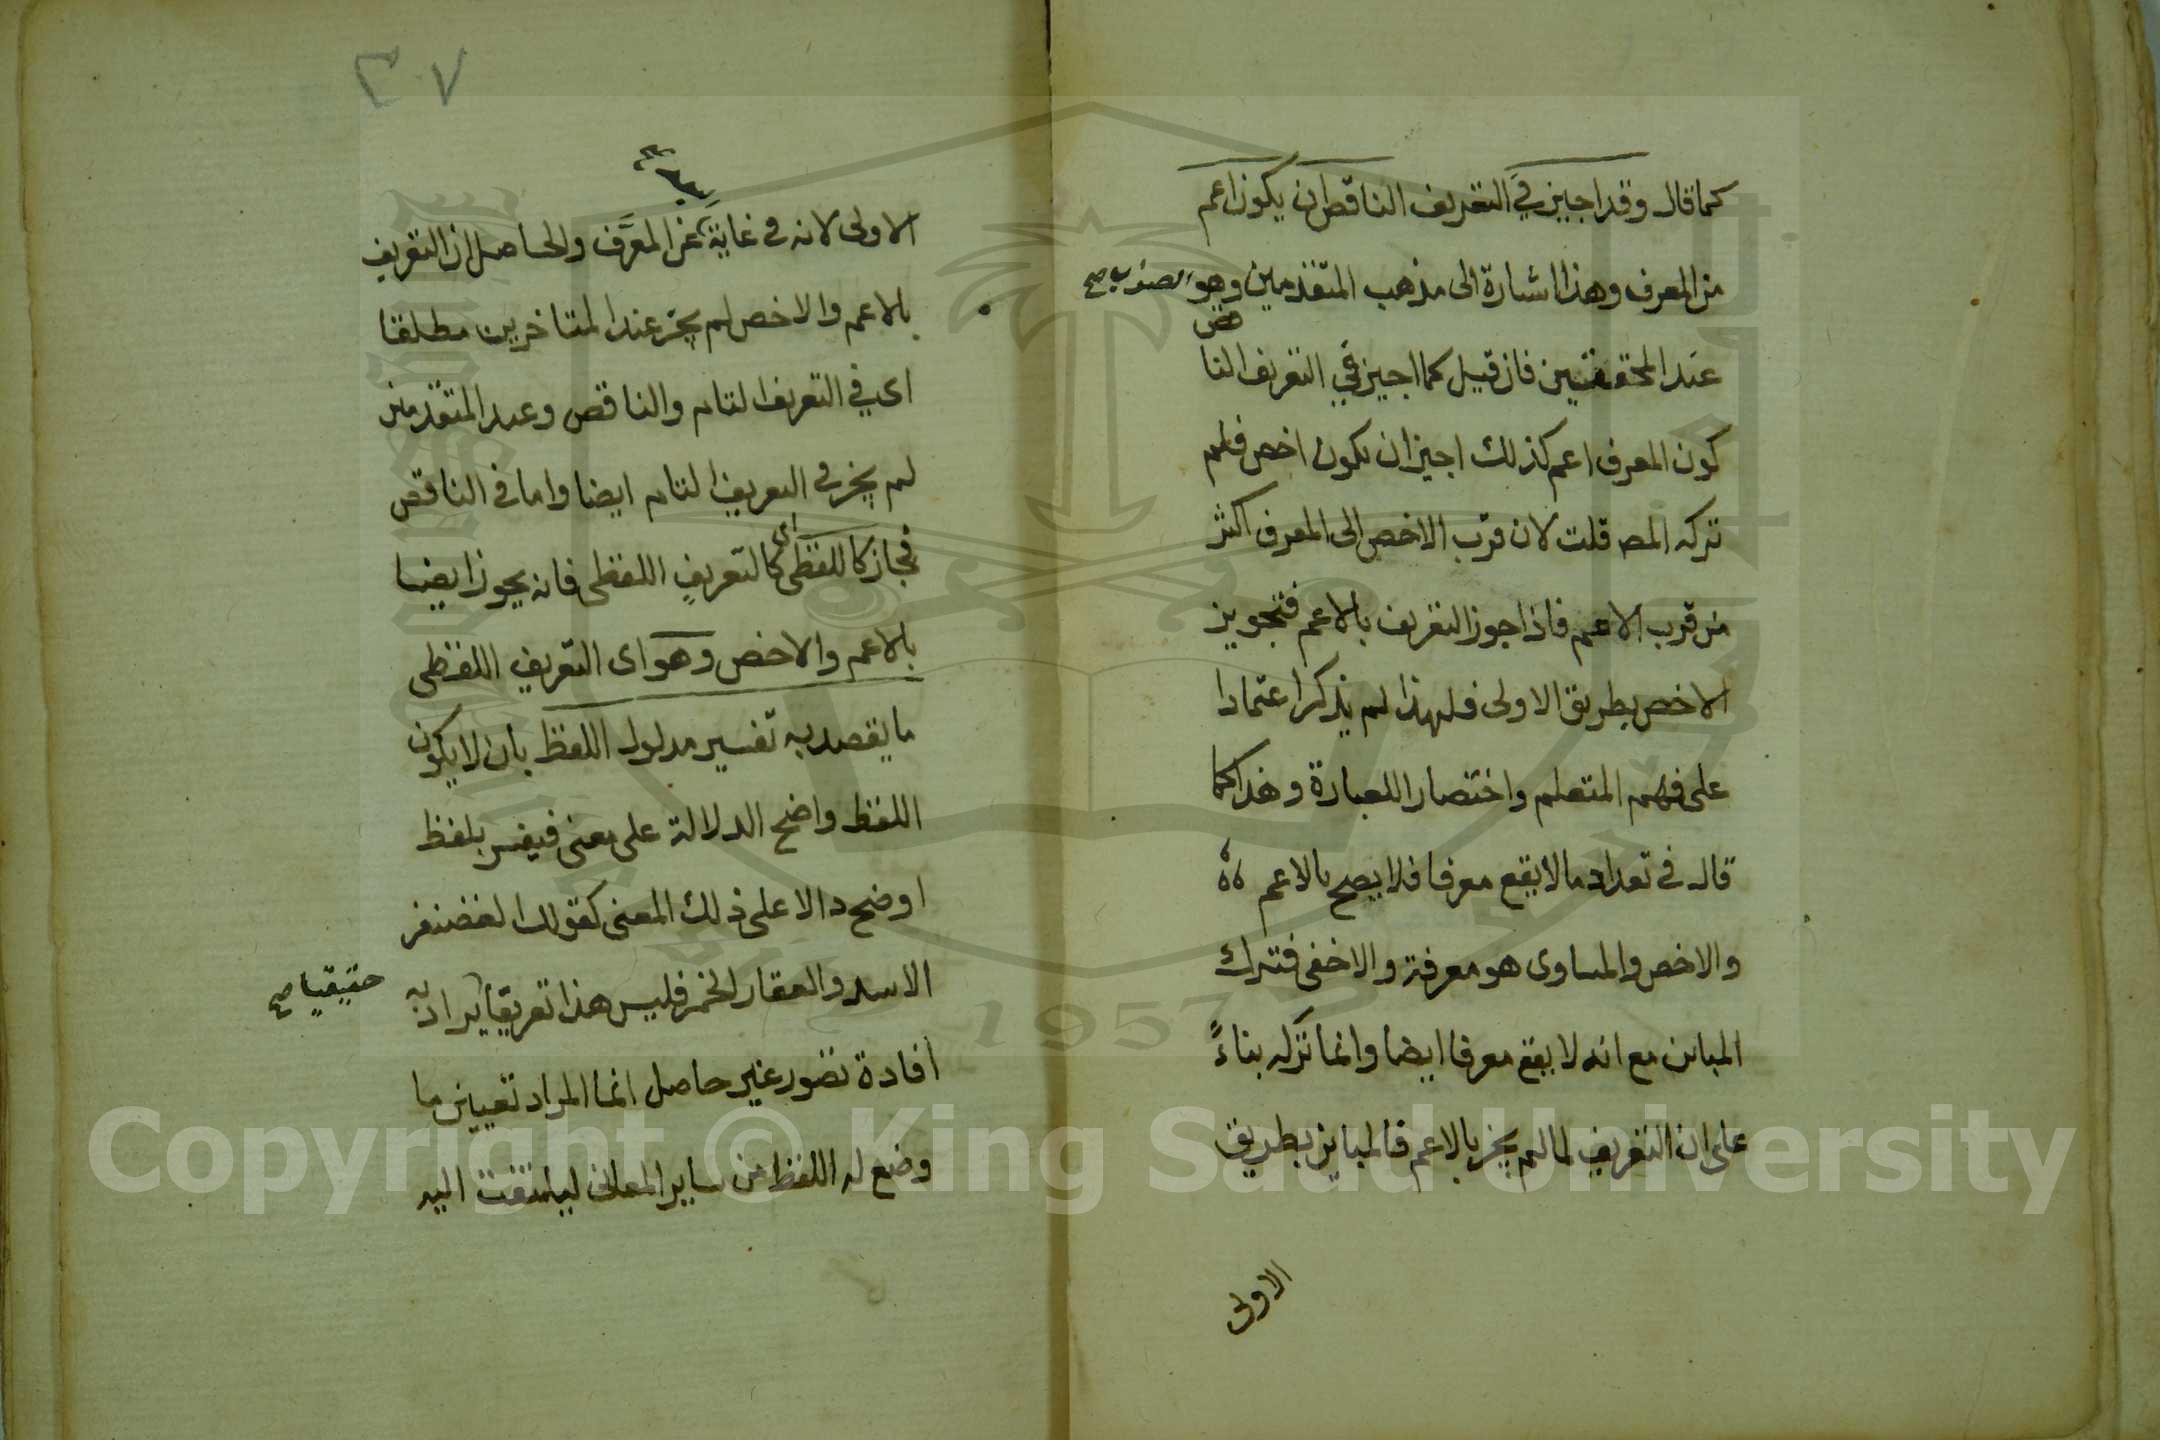 كما قال وقد اجيز في التعريف الناقص ان يكون اعم
من المعرف وهذا اشارة الى مذهب المتقدمين وهو الصواب صح
عند المحققين فان قيل كما اجيز في التعريف الناقص
كون المعرف اعم كذلك اجيز ان يكون اخص فلم
تركه المص قلت لان قرب الاخص الى المعرف اكثر
من قرب الاعم فاذا جوز التعريف بالاعم فتجويز
الاخص بطريق الاولى فلهذا لم يذكر اعتمادا
على فهم المتعلم واختصار اللعبارة وهذا كما
قال في تعداد ما لا يقع معرفا فلا يصح بالاعم
والاخص والمساوى هو معرفة والاخفى فترك
المباين مع انه لا يقع معرفا ايضا وانما تركه بناءً
على ان التعريف لما لم يجز بالاعم فالمباين بطريق
الاولى
٣٧
الاولى لانه في غاية عن المعرَّف والحاصل ان التعريف
بالاعم والاخص لم يجز عند المتاخرين مطلقا
اى في التعريف التام والناقص وعند المتقدمين
لم يجز في التعريف التام ايضا واما في الناقص
فجاز كاللفظى اى كالتعريف اللفظى فانه يجوز ايضا
بالاعم والاخص وهو اى التعريف اللفظى
ما يقصد به تفسير مدلول اللفظ بان لا يكون
اللفظ واضح الدلالة على معنى فيفسر بلفظ
اوضح دالا على ذلك المعنى كقولك الغضنفر
الاسد والعقار الخمر فليس هذا تعريفا يراد به
حقيقيا صح
افادة تصور غير حاصل انما المراد تعيين ما
وضع له اللفظ من ساير المعانى ليلتفت اليه
Copyright © King Saud University
1957